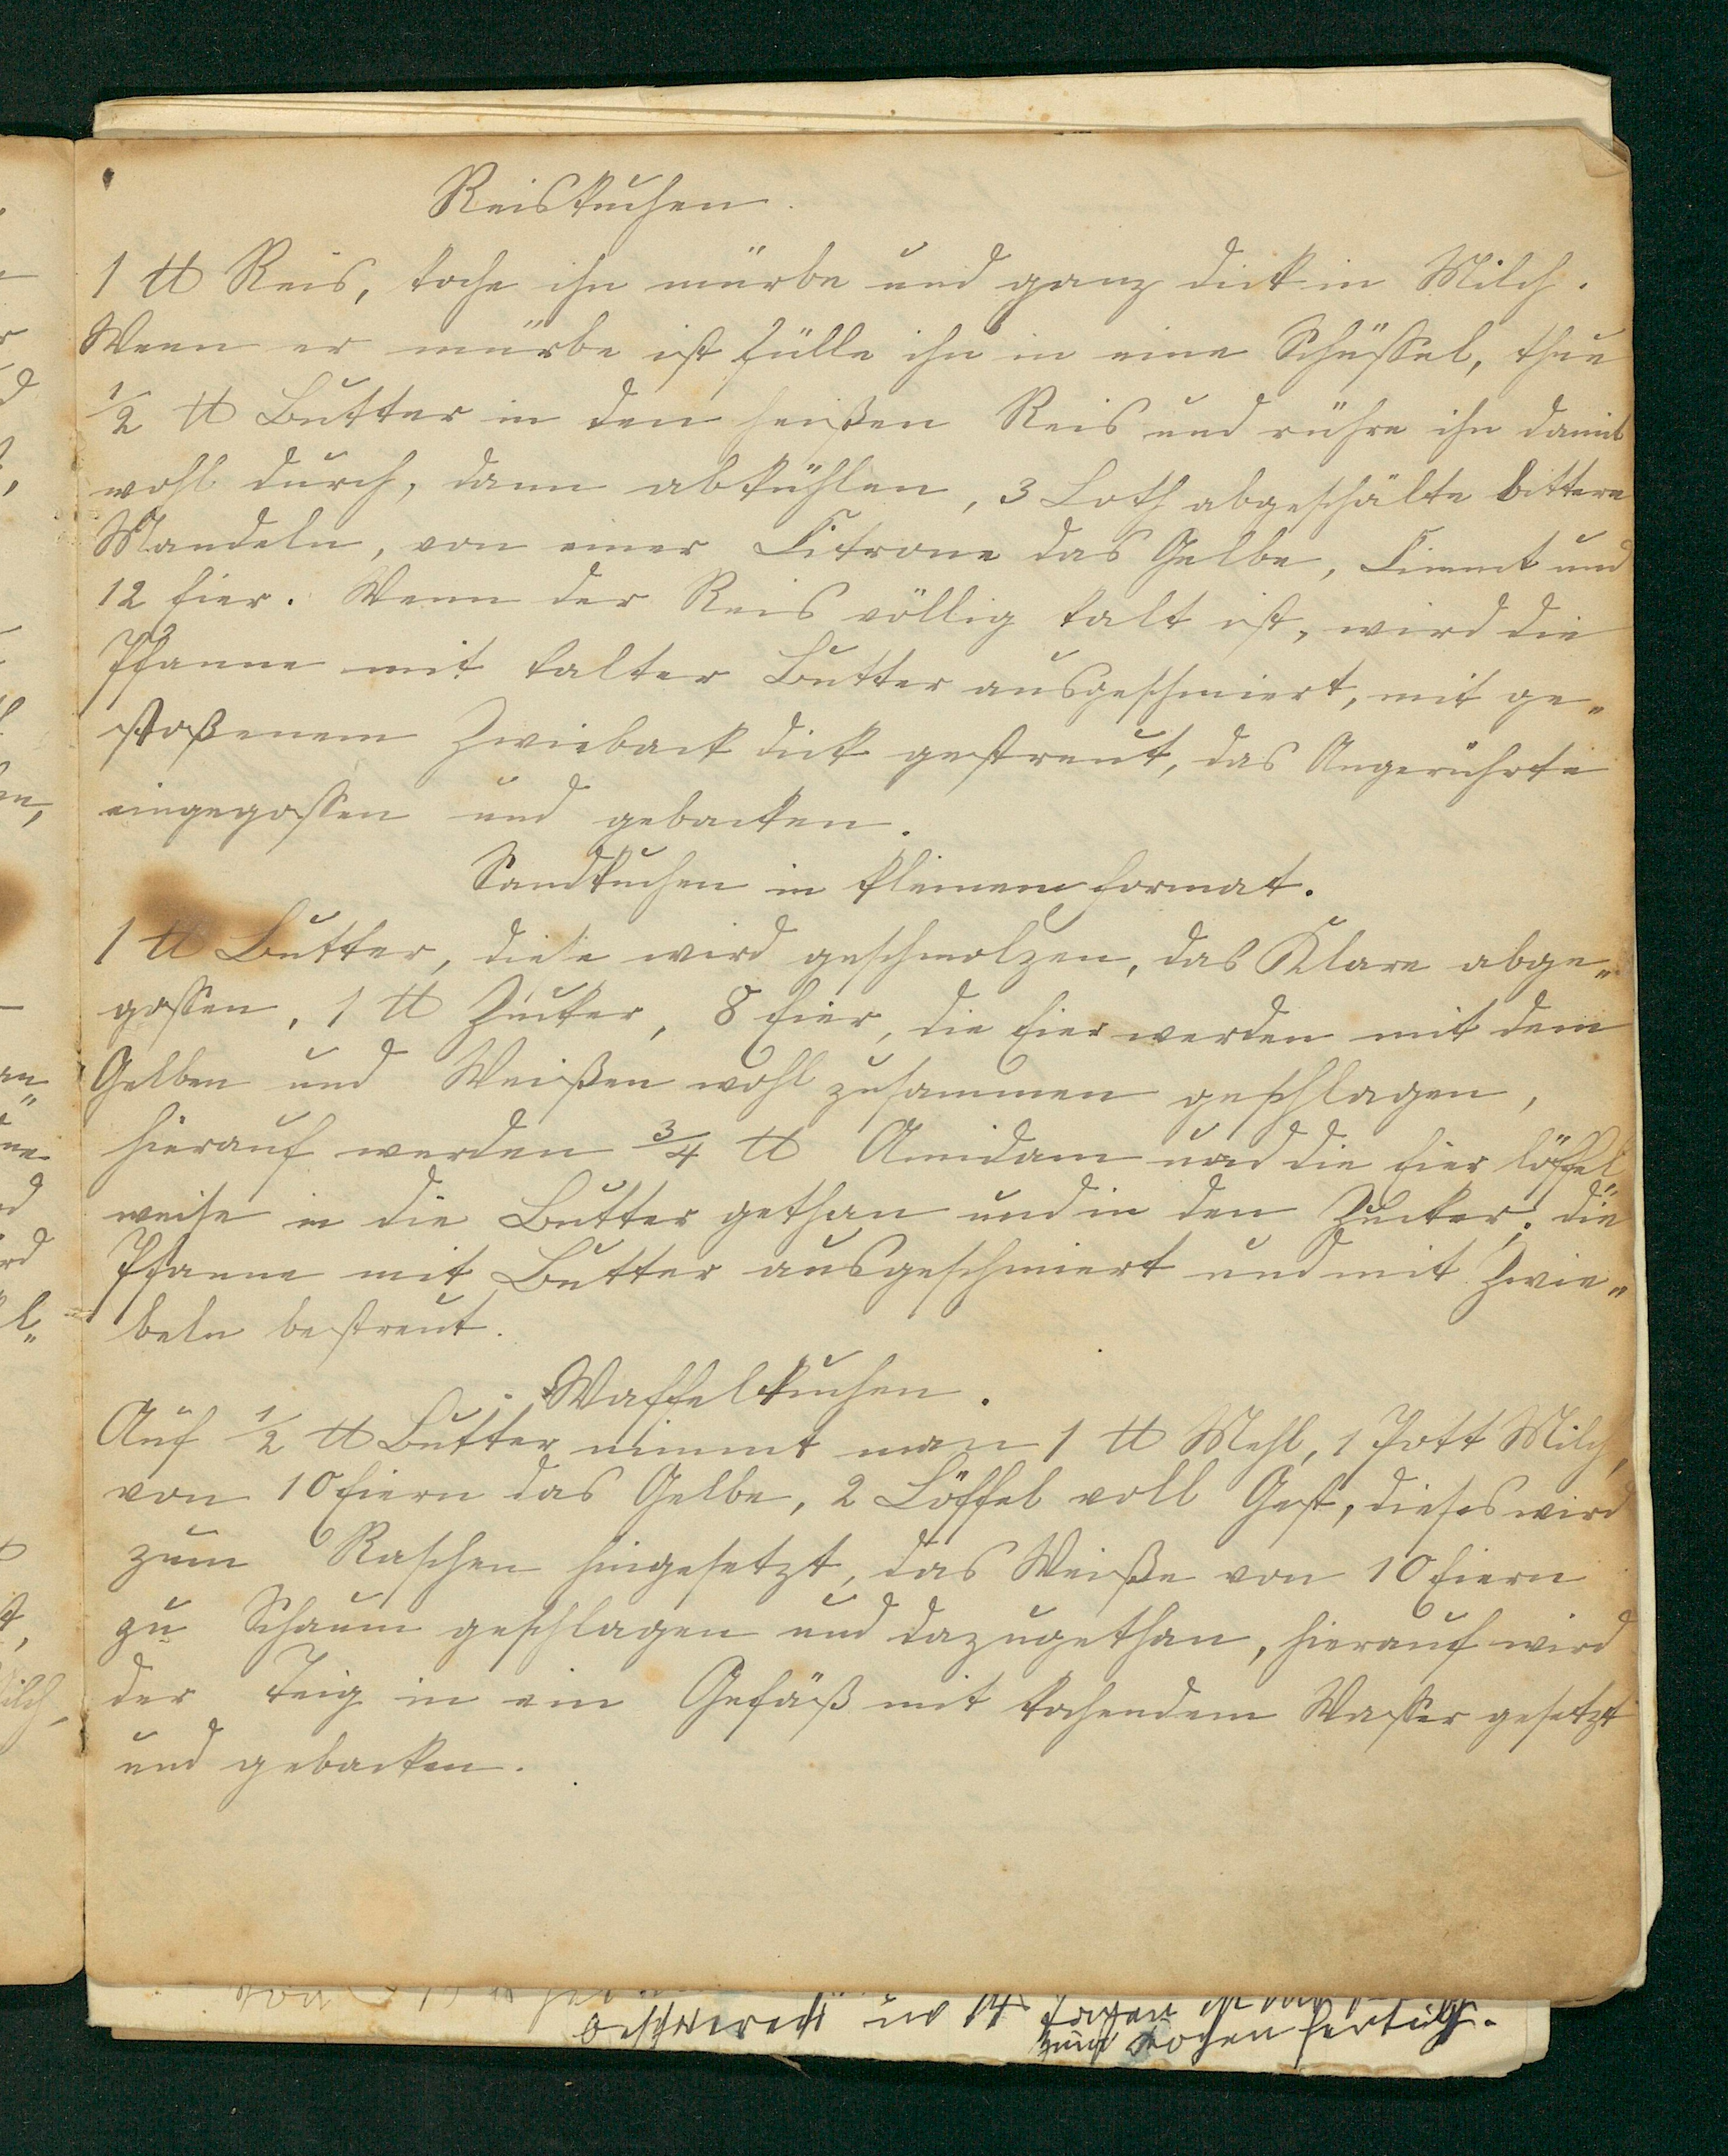 Reiskuchen.
1 ℔ Reis, koche ihn mürbe und ganz dick in Milch.
Wenn er mürbe ist fülle ihn in eine Schüssel, thue
1/2 ℔ Butter in den heißen Reis und rühre ihn damit
wohl durch, dann abkühlen, 3 Loth abgeschälte bittere
Mandeln, von einer Citrone das Gelbe, Cimmt und
12 Eier. Wenn der Reis völlig kalt ist, wird die
Pfanne mit kalter Butter ausgeschmiert, mit ge„
stoßenem Zwieback dick gestreut, das Angerührte
eingegossen und gebacken.
Sandkuchen in kleinem Format.
1 ℔ Butter, diese wird geschmolzen, das Klare abge„
gossen, 1 ℔ Zucker, 8 Eier, die Eier werden mit dem
Gelben und Weißen wohl zusammen geschlagen,
hierauf werden 3/4 ℔ Amidam und die Eier löffel„
weise in die Butter gethan und in den Zucker; die
Pfanne mit Butter ausgeschmiert und mit Zwie„
beln bestreut.
Waffelkuchen.
Auf 1/2 ℔ Butter nimmt man 1 ℔ Mehl, 1 Pott Milch,
von 10 Eiern das Gelbe, 2 Löffel voll Gest, dieses wird
zum Raschen hingesetzt, das Weiße von 10 Eiern
zu Schaum geschlagen und dazugethan, hierauf wird
der Teig in ein Gefäß mit kochendem Wasser gesetzt
und gebacken.
beschwert in 14 Tagen ist
zum Kochen fertig.